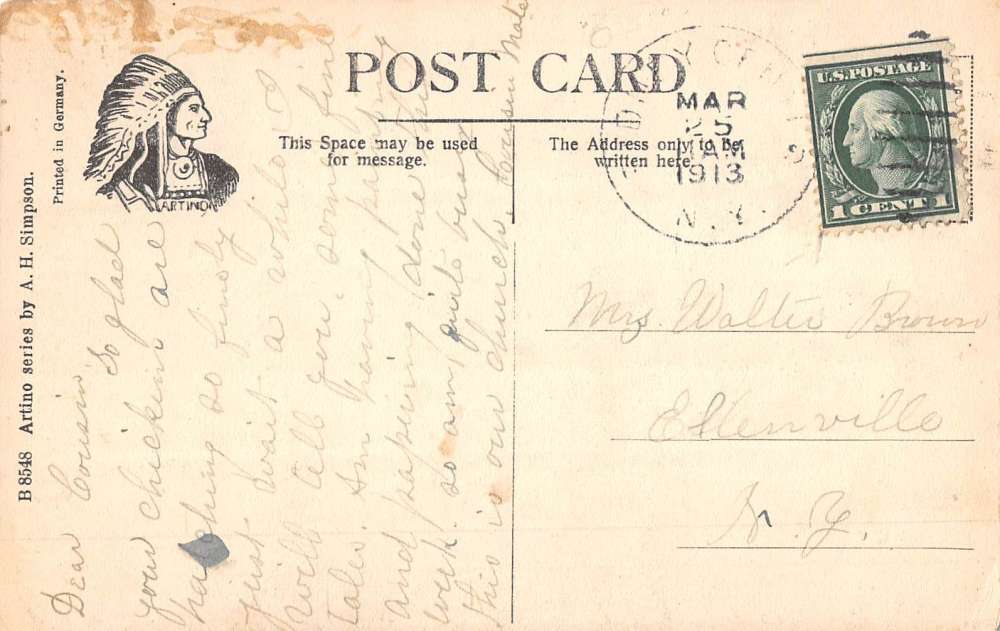 POST CARD
This Space may be used
for message.
The Address only to be
written here.
B 8548 Artino series by A. H. Simpson.
Printed in Germany.
ARTINO
MAR
25
AM
1913
N.Y.
U.S. POSTAGE
1 CENT 1
Dear Cousin So glad
your chickens are
hatching so finely
just wait a while I
will tell you some fine
tales. Am having painting
and papering done this
week. so am quite busy
this is our church Cousin Nate
Mrs. Walter Brown
Ellenville
N. Y.